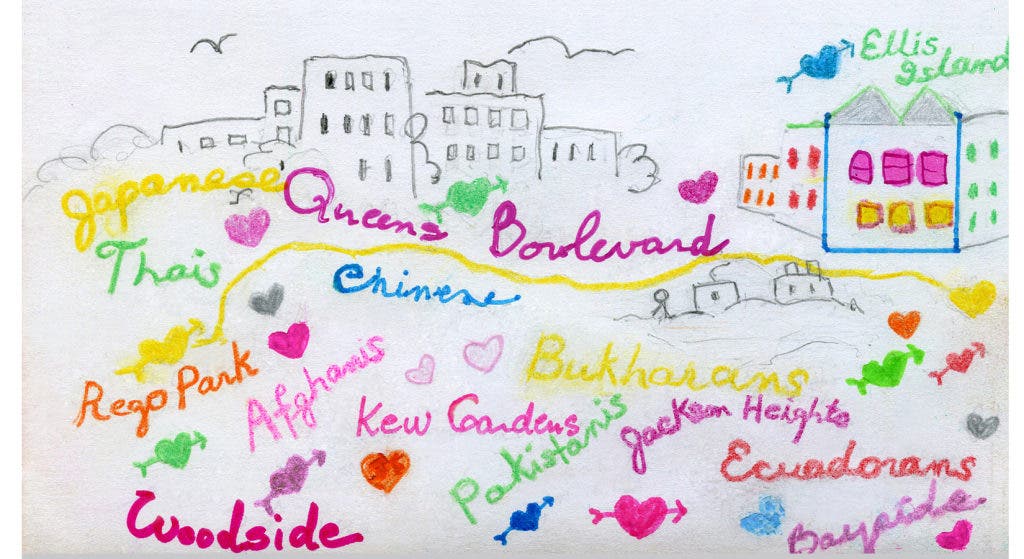 Ellis
Island
Japanese
Queens Boulevard
Thais
Chinese
Rego Park
Afghanis
Bukharans
Kew Gardens
Pakistanis
Jackson Heights
Ecuadorans
Woodside
Bayside